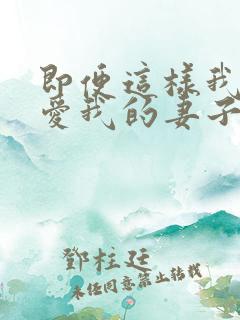 即便這樣我
愛我的妻子
鄧柱廷
未经同意禁止转载